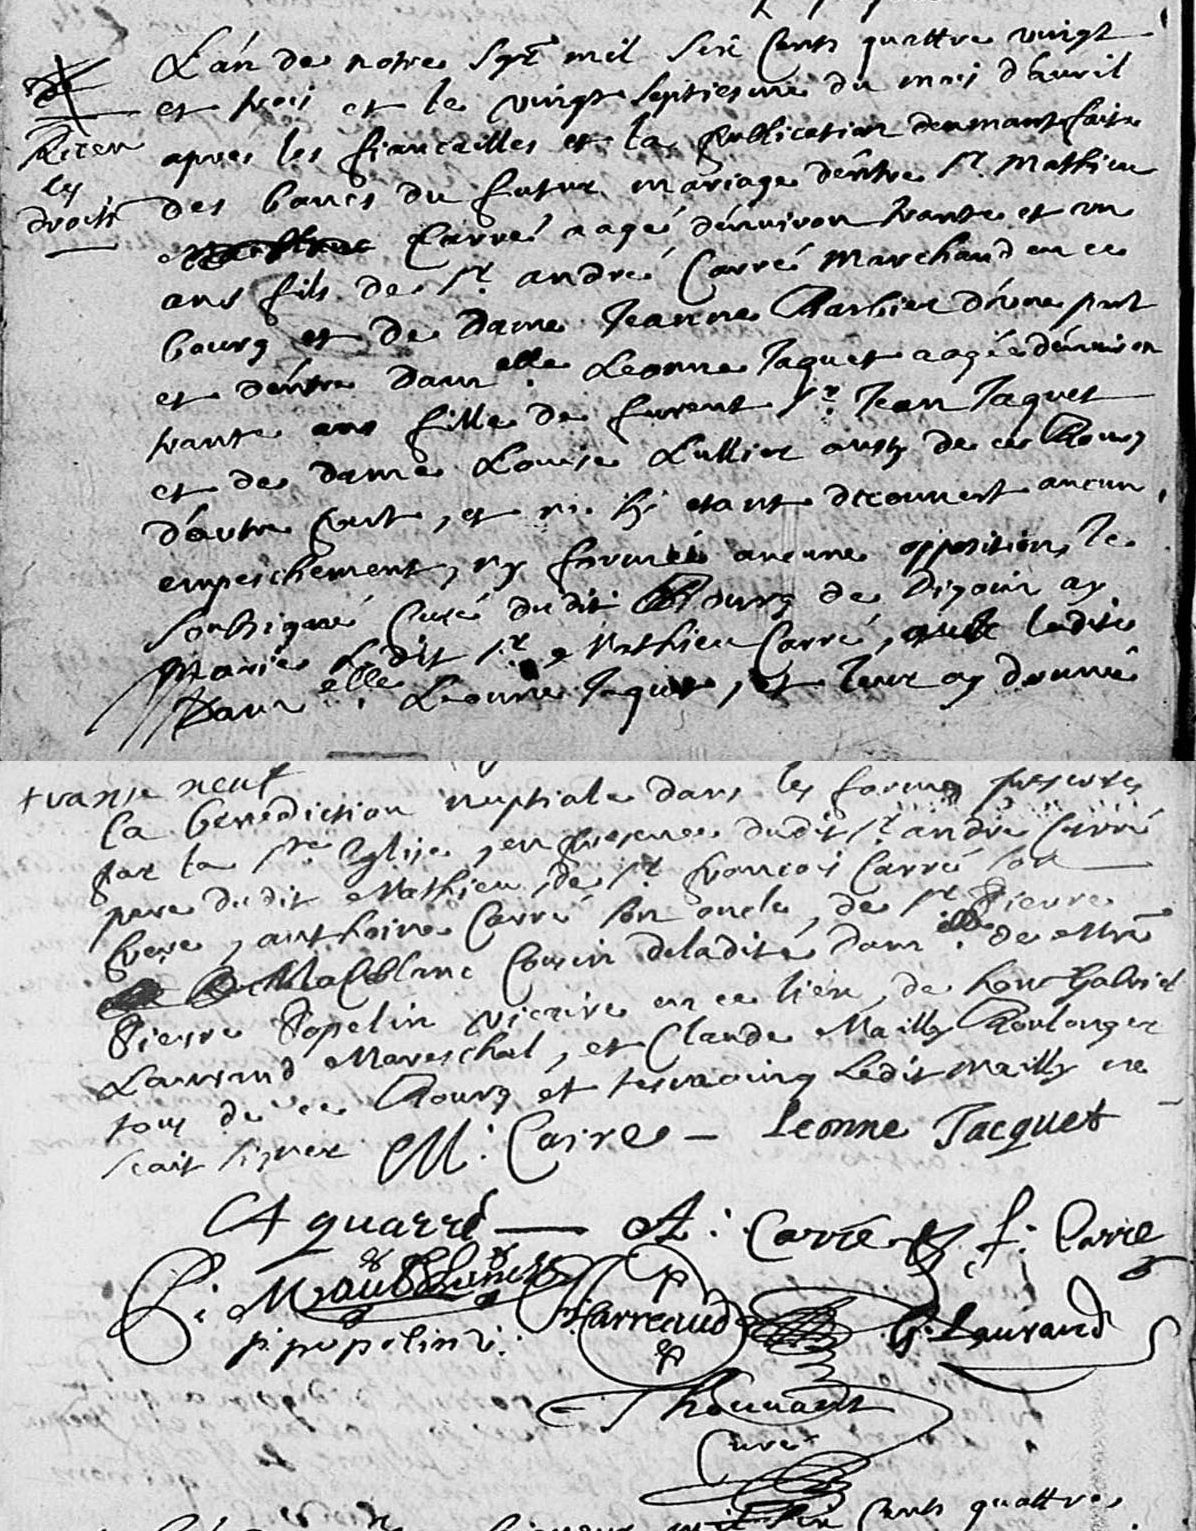 L'an de notre Sgr mil Six Cents quattre vingt
et trois et le vingt Septiesme du mois d'auril
Receu
les
droits
apres les fiancailles et la publication deumant faite
des bancs du futur mariage d'entre Sr. Mathieu
Carré aagé d'enuiron trante et un
ans fils de Sr. andré Carré Marchand en ce
bourg et de Dame Jeanne Barbier d'une part
et d'entre Dam elle. Leonne Jaquet aagée d'enuiron
trante ans fille de furent Sr. Jean Jaquet
et de dame Louise Lullier aussy de ce Bourg
d'autre part, et ne s'y etant decouuert aucun
empeschement, ny formée aucune opposition, Je
Soubsigné Curé dudit Bourg de Digoin ay
Marié Ledit Sr. Mathieu Carré, auec ladite
Dam elle. Leonne Jaquet, et leur ay donné
trante neuf
la benediction nuptiale dans les formes prescrites
par la Ste Eglise, en presence dudit Sr. andré Carré
pere dudit Mathieu, de Sr. françois Carré son
frere, anthoine Carré son oncle, de Sr. Pierre
Maublanc Cousin deladite dam elle. de Mre
Pierre Popelin vicaire en ce lieu, de hon. Gabriel
Laurand Mareschal, et Claude Mailly Boulanger
tous de ce Bourg et tesmoing Ledit Mailly ne
scait signer M. Carre — Leonne Jacquet
A quarré — A. Carré f. Carré
P. Maublanc
p. popelin v. Larreaud G. Laurand
Thouuant
Curé
Cents quattre